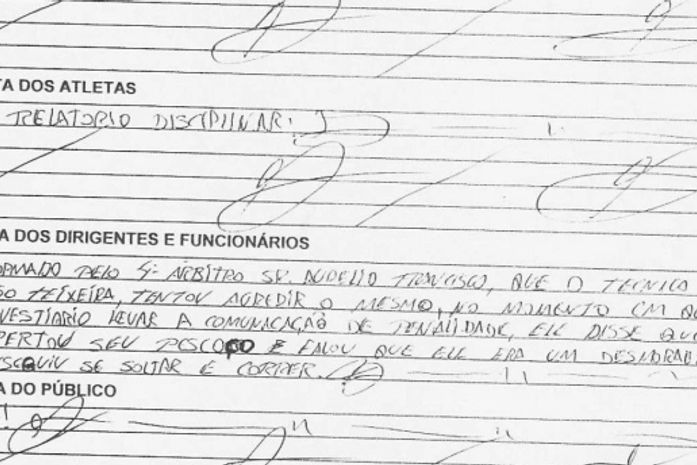 TA DOS ATLETAS
RELATORIO DISCIPLINAR:
A DOS DIRIGENTES E FUNCIONÁRIOS
ORMADO PELO 4º ÁRBITRO SR. AUDELIO FRANCISCO, QUE O TECNICO
SO TEIXEIRA, TENTOU AGREDIR O MESMO, NO MOMENTO EM QU
VESTIARIO LEVAR A COMUNICAÇÃO DE PENALIDADE, ELE DISSE QUE
PERTOU SEU PESCOÇO E FALOU QUE ELE ERA UM
SE SOLTAR E CORRER.
A DO PÚBLICO